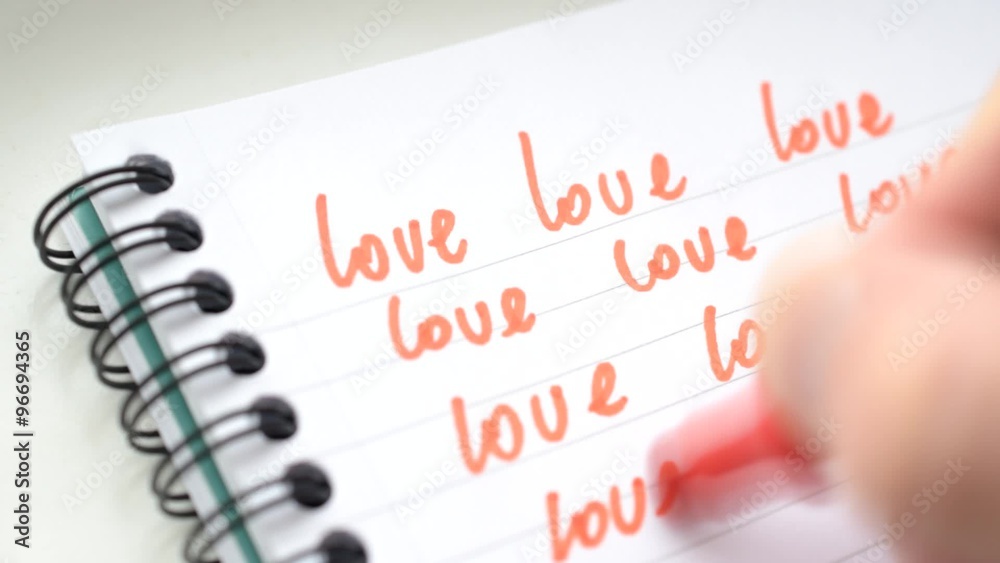 love love love
love love lov
love lo
lov
Adobe Stock | #96694365